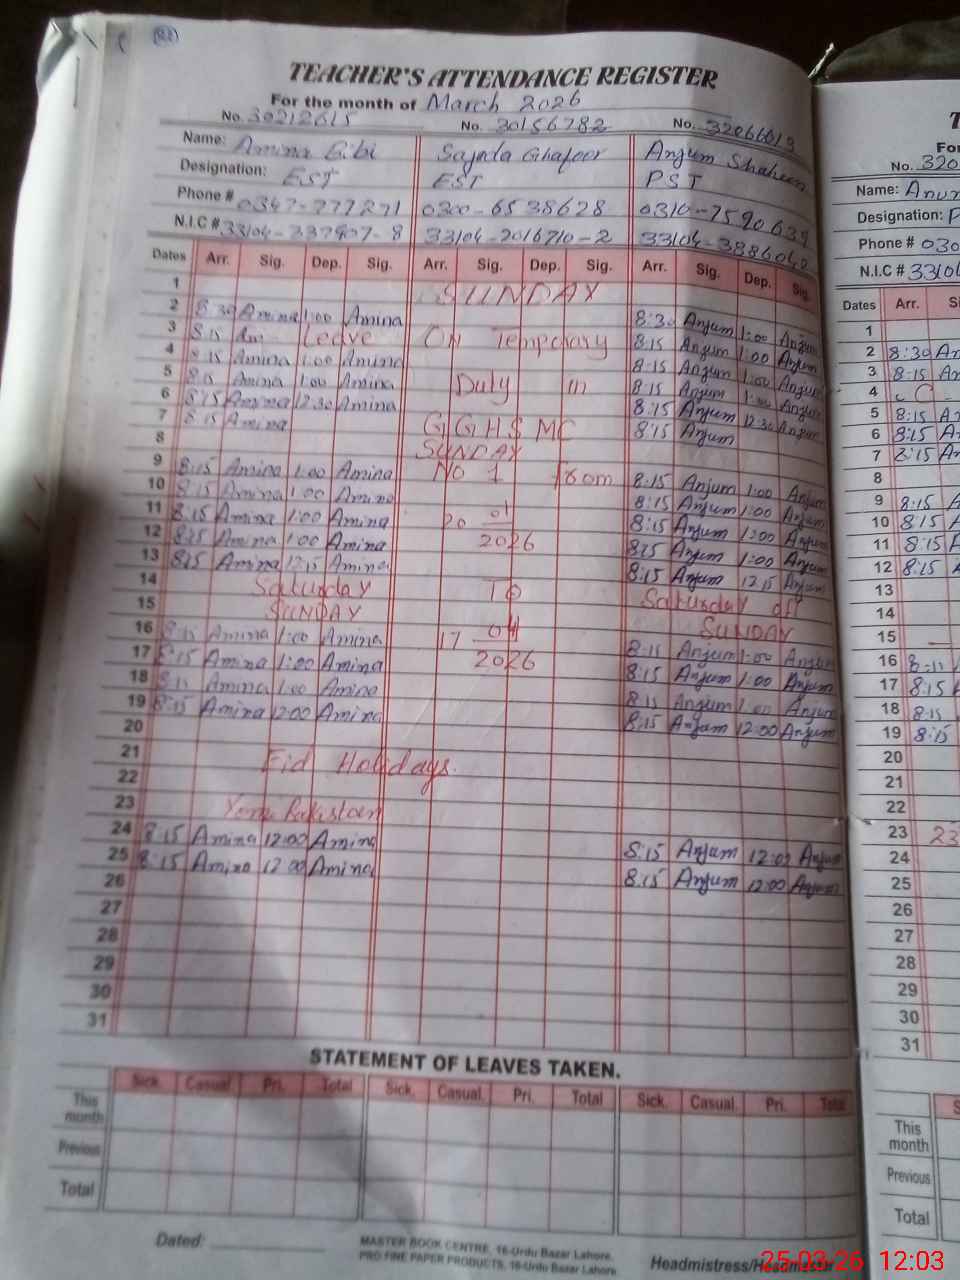 TEACHER'S ATTENDANCE REGISTER
For the month of March 2026
No. 30212615 No. 30156782 No. 32066019
Name: Amina Bibi Sajada Ghafoor Anjum Shaheen
Designation: EST EST PST
Phone # 0347-777271 0300-6538628 0310-7590639
N.I.C # 33104-337907-8 33104-2016710-2 33104-3886040
Dates Arr. Sig. Dep. Sig. Arr. Sig. Dep. Sig. Arr. Sig. Dep. Sig.
1 SUNDAY
2 8:30 Amina 1:00 Amina 8:30 Anjum 1:00 Anjum
3 8:15 Am Leave ON Temporary 8:15 Anjum 1:00 Anjum
4 8:15 Amina 1:00 Amina 8:15 Anjum 1:00 Anjum
5 8:15 Amina 1:00 Amina Duty in 8:15 Anjum 1:00 Anjum
6 8:15 Amina 12:30 Amina 8:15 Anjum 12:30 Anjum
7 8:15 Amina GGHS MC 8:15 Anjum
8 SUNDAY
9 8:15 Amina 1:00 Amina No 1 from 8:15 Anjum 1:00 Anjum
10 8:15 Amina 1:00 Amina 8:15 Anjum 1:00 Anjum
11 8:15 Amina 1:00 Amina 20 01 8:15 Anjum 1:00 Anjum
12 8:15 Amina 1:00 Amina 2026 8:15 Anjum 1:00 Anjum
13 8:15 Amina 12:15 Amina 8:15 Anjum 12:15 Anjum
14 Saturday To Saturday off
15 SUNDAY SUNDAY
16 8:15 Amina 1:00 Amina 17 04 8:15 Anjum 1:00 Anjum
17 8:15 Amina 1:00 Amina 2026 8:15 Anjum 1:00 Anjum
18 8:15 Amina 1:00 Amina 8:15 Anjum 1:00 Anjum
19 8:15 Amina 12:00 Amina 8:15 Anjum 12:00 Anjum
20
21 Eid Holidays.
22
23 Pakistan
24 8:15 Amina 12:00 Amina 8:15 Anjum 12:00 Anjum
25 8:15 Amina 12:00 Amina 8:15 Anjum 12:00 Anjum
26
27
28
29
30
31
STATEMENT OF LEAVES TAKEN.
Sick. Casual. Pri. Total Sick. Casual. Pri. Total Sick. Casual. Pri. Total
This month
Previous
Total
Dated:
MASTER BOOK CENTRE, 16-Urdu Bazar Lahore.
PRO FINE PAPER PRODUCTS, 16-Urdu Bazar Lahore.
Headmistress/Headmaster
No. 320
Name: Anum
Designation: P
Phone # 030
N.I.C # 3310
Dates Arr.
1
2 8:30 An
3 8:15 An
4 C
5 8:15 A
6 8:15 A
7 8:15 An
8
9 8:15 A
10 8:15 A
11 8:15 A
12 8:15 A
13
14
15
16 8:15
17 8:15 A
18 8:15
19 8:15
20
21
22
23 23
24
25
26
27
28
29
30
31
This month
Previous
Total
25-03-26 12:03